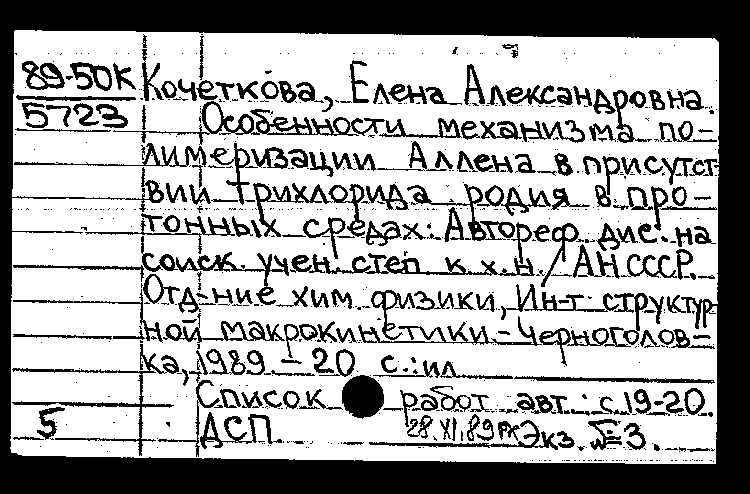 89-50К
5723
Кочеткова, Елена Александровна.
Особенности механизма по-
лимеризации Аллена в присутст-
вии трихлорида родия в про-
тонных средах: Автореф. дис. на
соиск. учен. степ к. х. н. / АН СССР.
Отд-ние хим. физики, Ин-т структур-
ной макрокинетики. - Черноголов-
ка, 1989 - 20 с.: ил
Список работ авт.: с. 19-20.
5 ДСП. 28.XI.89 Экз. № 3.